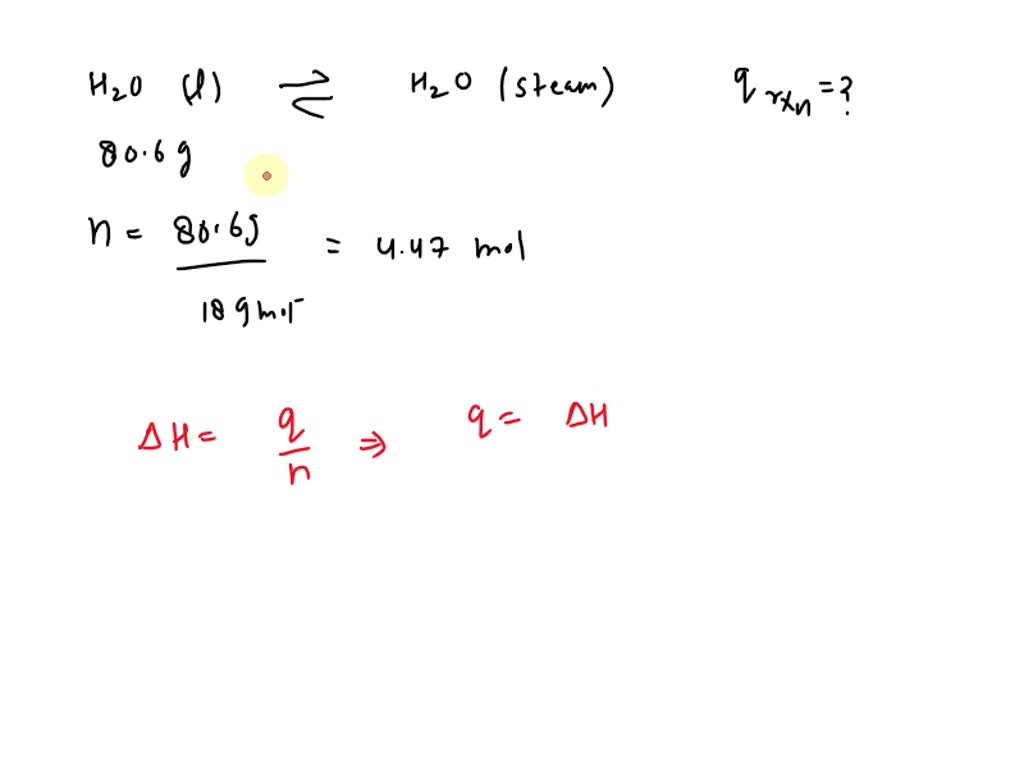 H2O (l) ⇌ H2O (steam) q rxn = ?
80.6 g
n = 80.6g / 18 g mol- = 4.47 mol
ΔH = q / n ⇒ q = ΔH